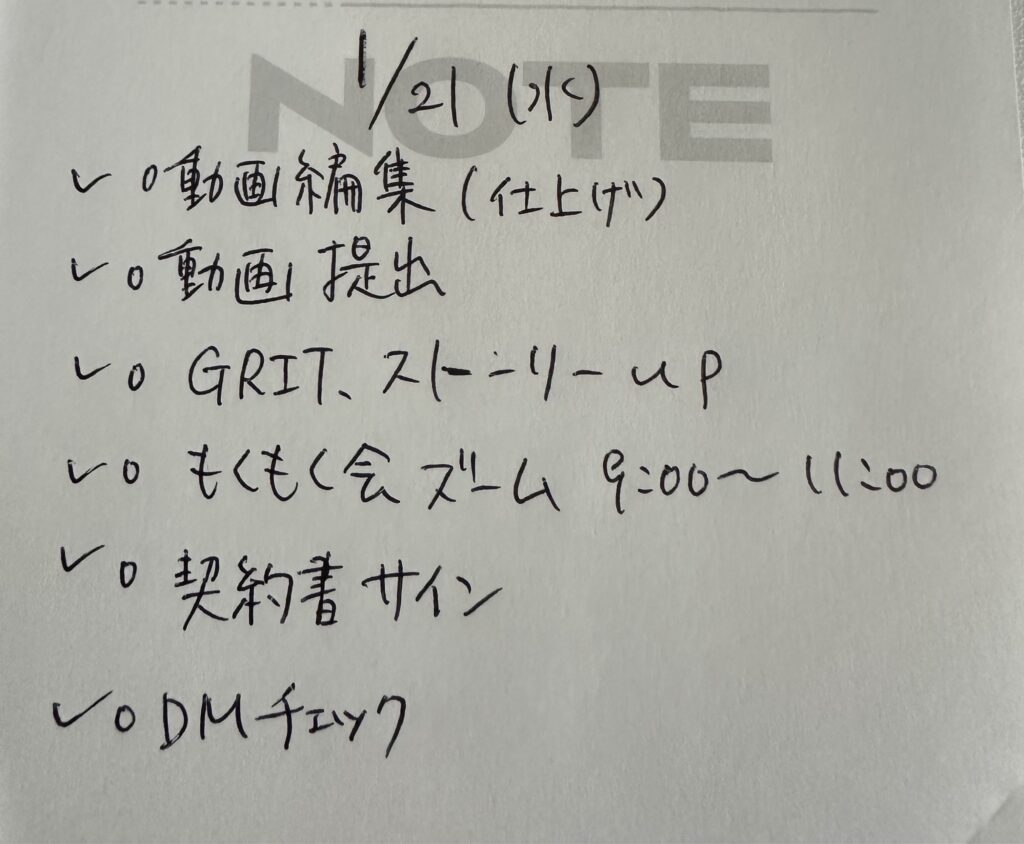 NOTE
1/21 (水)
✓ ○ 動画編集 (仕上げ)
✓ ○ 動画 提出
✓ ○ GRIT、ストーリー up
✓ ○ もくもく会 ズーム 9:00〜11:00
✓ ○ 契約書 サイン
✓ ○ DMチェック